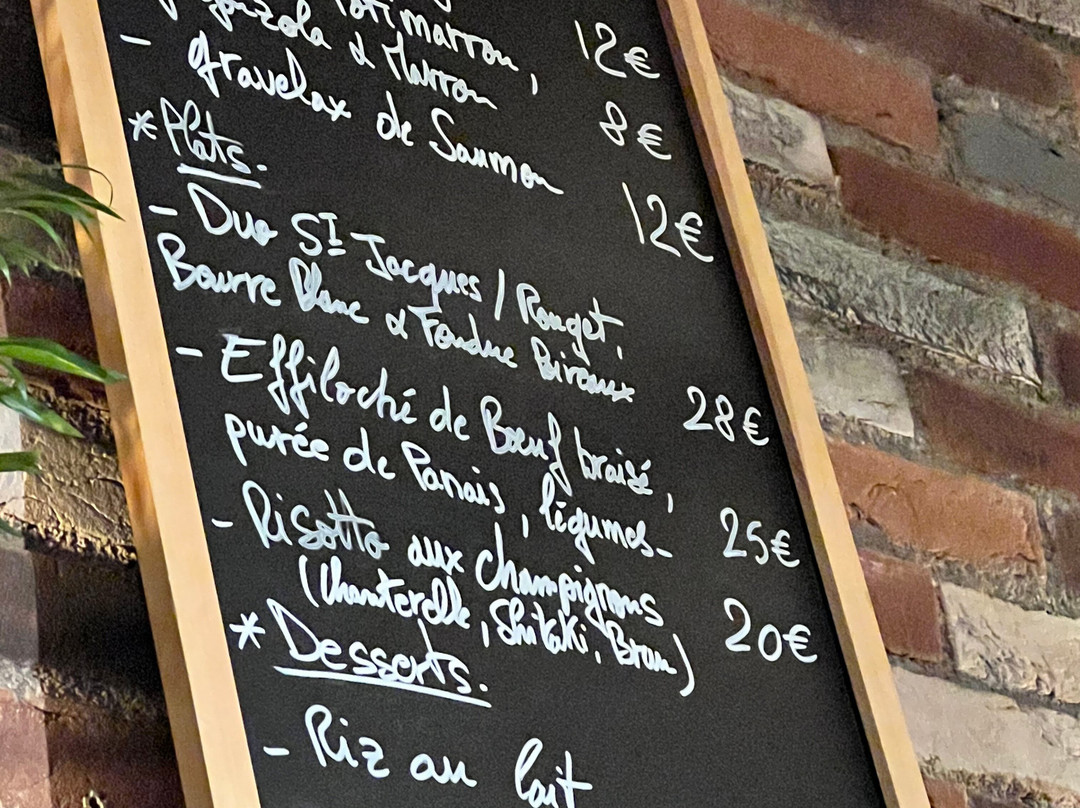 otimarron, 12€
& Marron 8€
- gravelax de Saumon 12€
* Plats.
- Duo St Jacques / Rouget,
Beurre Blanc & Fondue Poireaux 28€
- Effiloché de Bœuf braisé,
purée de Panais, légumes- 25€
- Risotto aux champignons 20€
(Chanterelle, Shitaki, Brun)
* Desserts.
- Riz au lait